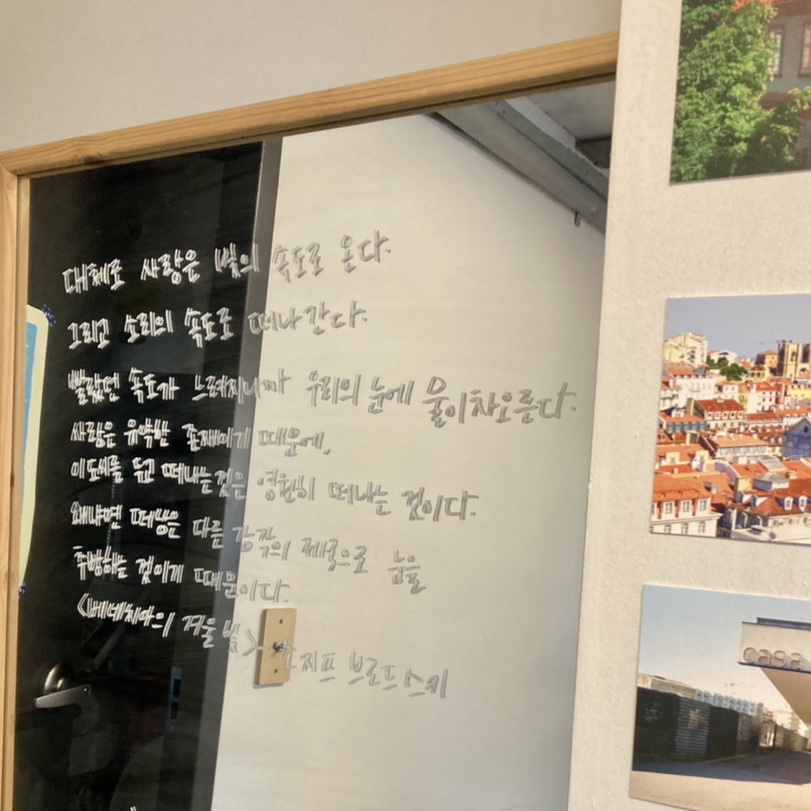 대체로 사랑은 빛의 속도로 온다.
그리고 소리의 속도로 떠나간다.
빨랐던 속도가 느려지니까 우리의 눈에 물이차오른다.
사랑은 유약한 존재이기 때문에,
이 도시를 두고 떠나는 것은 영원히 떠나는 것이다.
왜냐면 떠남은 다른 감각의 제국으로 눈을
추방하는 것이게 때문이다.
<베네치아의 겨울 빛> 조지프 브로드스키
casa